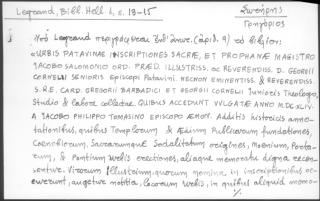 Legrand, Bibl. Hell. 4, σ. 13-15
Σωτήρης
Γρηγόριος
Νού Legrand περιγράφεται ἐνθ' ἀνωτ. (ἀριθ. 9) τὸ βιβλίον:
«URBIS PATAVINAE INSCRIPTIONES SACRÆ, ET PROPHANÆ MAGISTRO
IACOBO SALOMONIO ORD. PRÆD. ILLUSTRISS. AC REVERENDISS. D. GEORGII
CORNELII SENIORIS EPISCOPI PATAVINI. NECNON EMINENTISS. & REVERENDISS.
S.R.E. CARD. GREGORII BARBADICI ET GEORGII CORNELII Junioris Theologo,
Studio & labore collectæ. QUIBUS ACCEDUNT VULGATÆ ANNO M.DC.XLIV.
A JACOBO PHILIPPO TOMASINO EPISCOPO ÆMON. Additis historicis anno-
tationibus, quibus Templorum & Ædium Publicarum fundationes,
Coenobiorum, Sacrarumque Sodalitatum origines, Moenium, Porta-
rum, & Pontium Urbis erectiones, aliaque memoratu digna recen-
sentur. Virorum Illustrium, quorum nomina in inscriptionibus oc-
currunt, augetur notitia, Locorum Urbis, in quibus aliquid memo-